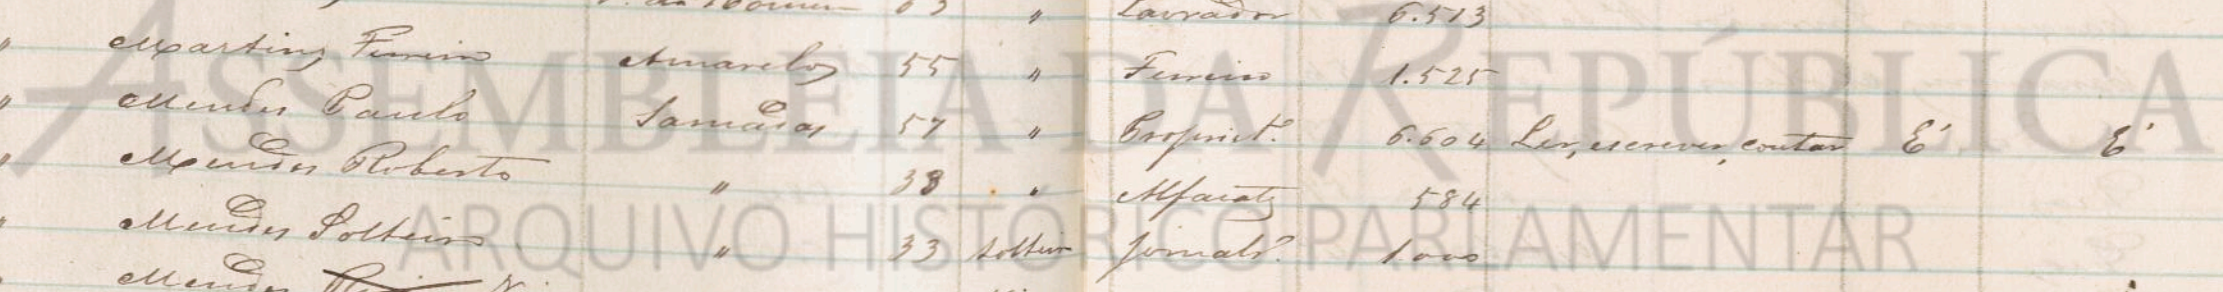 " Lavrador 6.513
" Martins Ferreiro Amarelos 55 " Ferreiro 1.525
" Mendes Paulo Sarnadas 57 " Propriet.º 6.604 Ler, escrever, contar É É
" Mendes Roberto " 38 " Alfaiate 584
" Mendes Solteiro " 33 solteiro Jornalr.º 1.000
Mendes
ASSEMBLEIA DA REPÚBLICA
ARQUIVO HISTÓRICO PARLAMENTAR